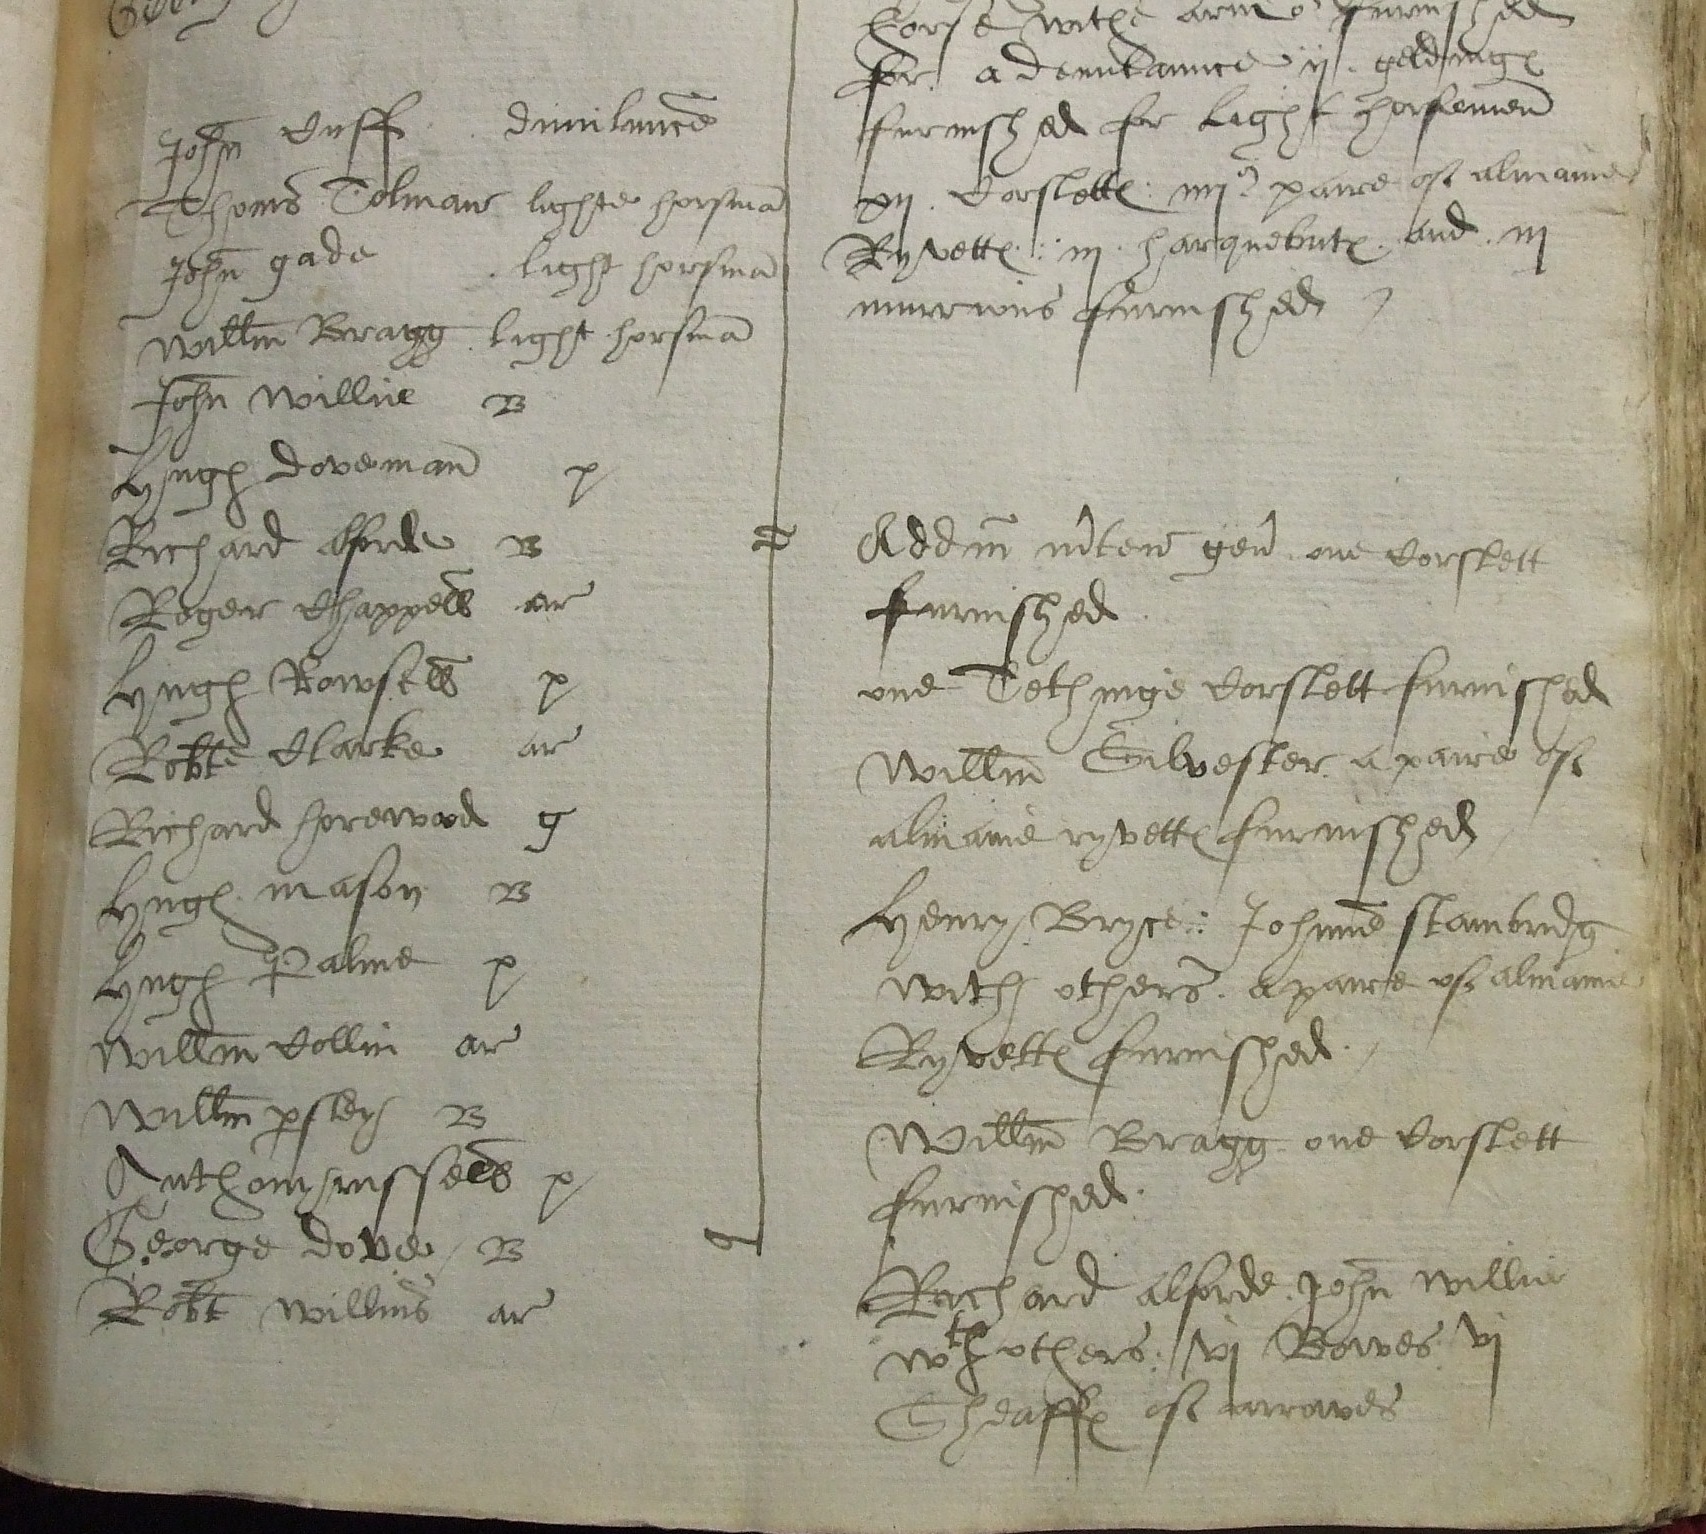 John Cuff dimilaunce
Thoms Tolman lighte horsman
John gade light horsman
Willm Bragg light horsman
John Willie B
Hugh Doveman p
Richard Alforde B
Roger Chappell ar
Hugh Rowsell p
Robte Clarke ar
Richard horewood g
Hugh mason B
Hugh Palme p
Willm Collin ar
Willm psley B
Anthony russell p
George Dove B
Robt Willms ar
horse withe furnished
for a demilaunce ij geldinges
furnished for Light horsemen
Corslettes iiij paire of almaine
Ryvettes iij harquebutes and iij
murrions furnished
Addm gen one Corslett
furnished
one Tethinge Corslett furnished
Willm Silvester a paire of
almaine ryvettes furnished
Henry Bryce Johnne Stambridg
with others a paire of almaine
Ryvettes furnished
Willm Bragg one Corslett
furnished
Richard Alforde John Willie
wth others vj Bowes vj
Sheaffes of arrowes